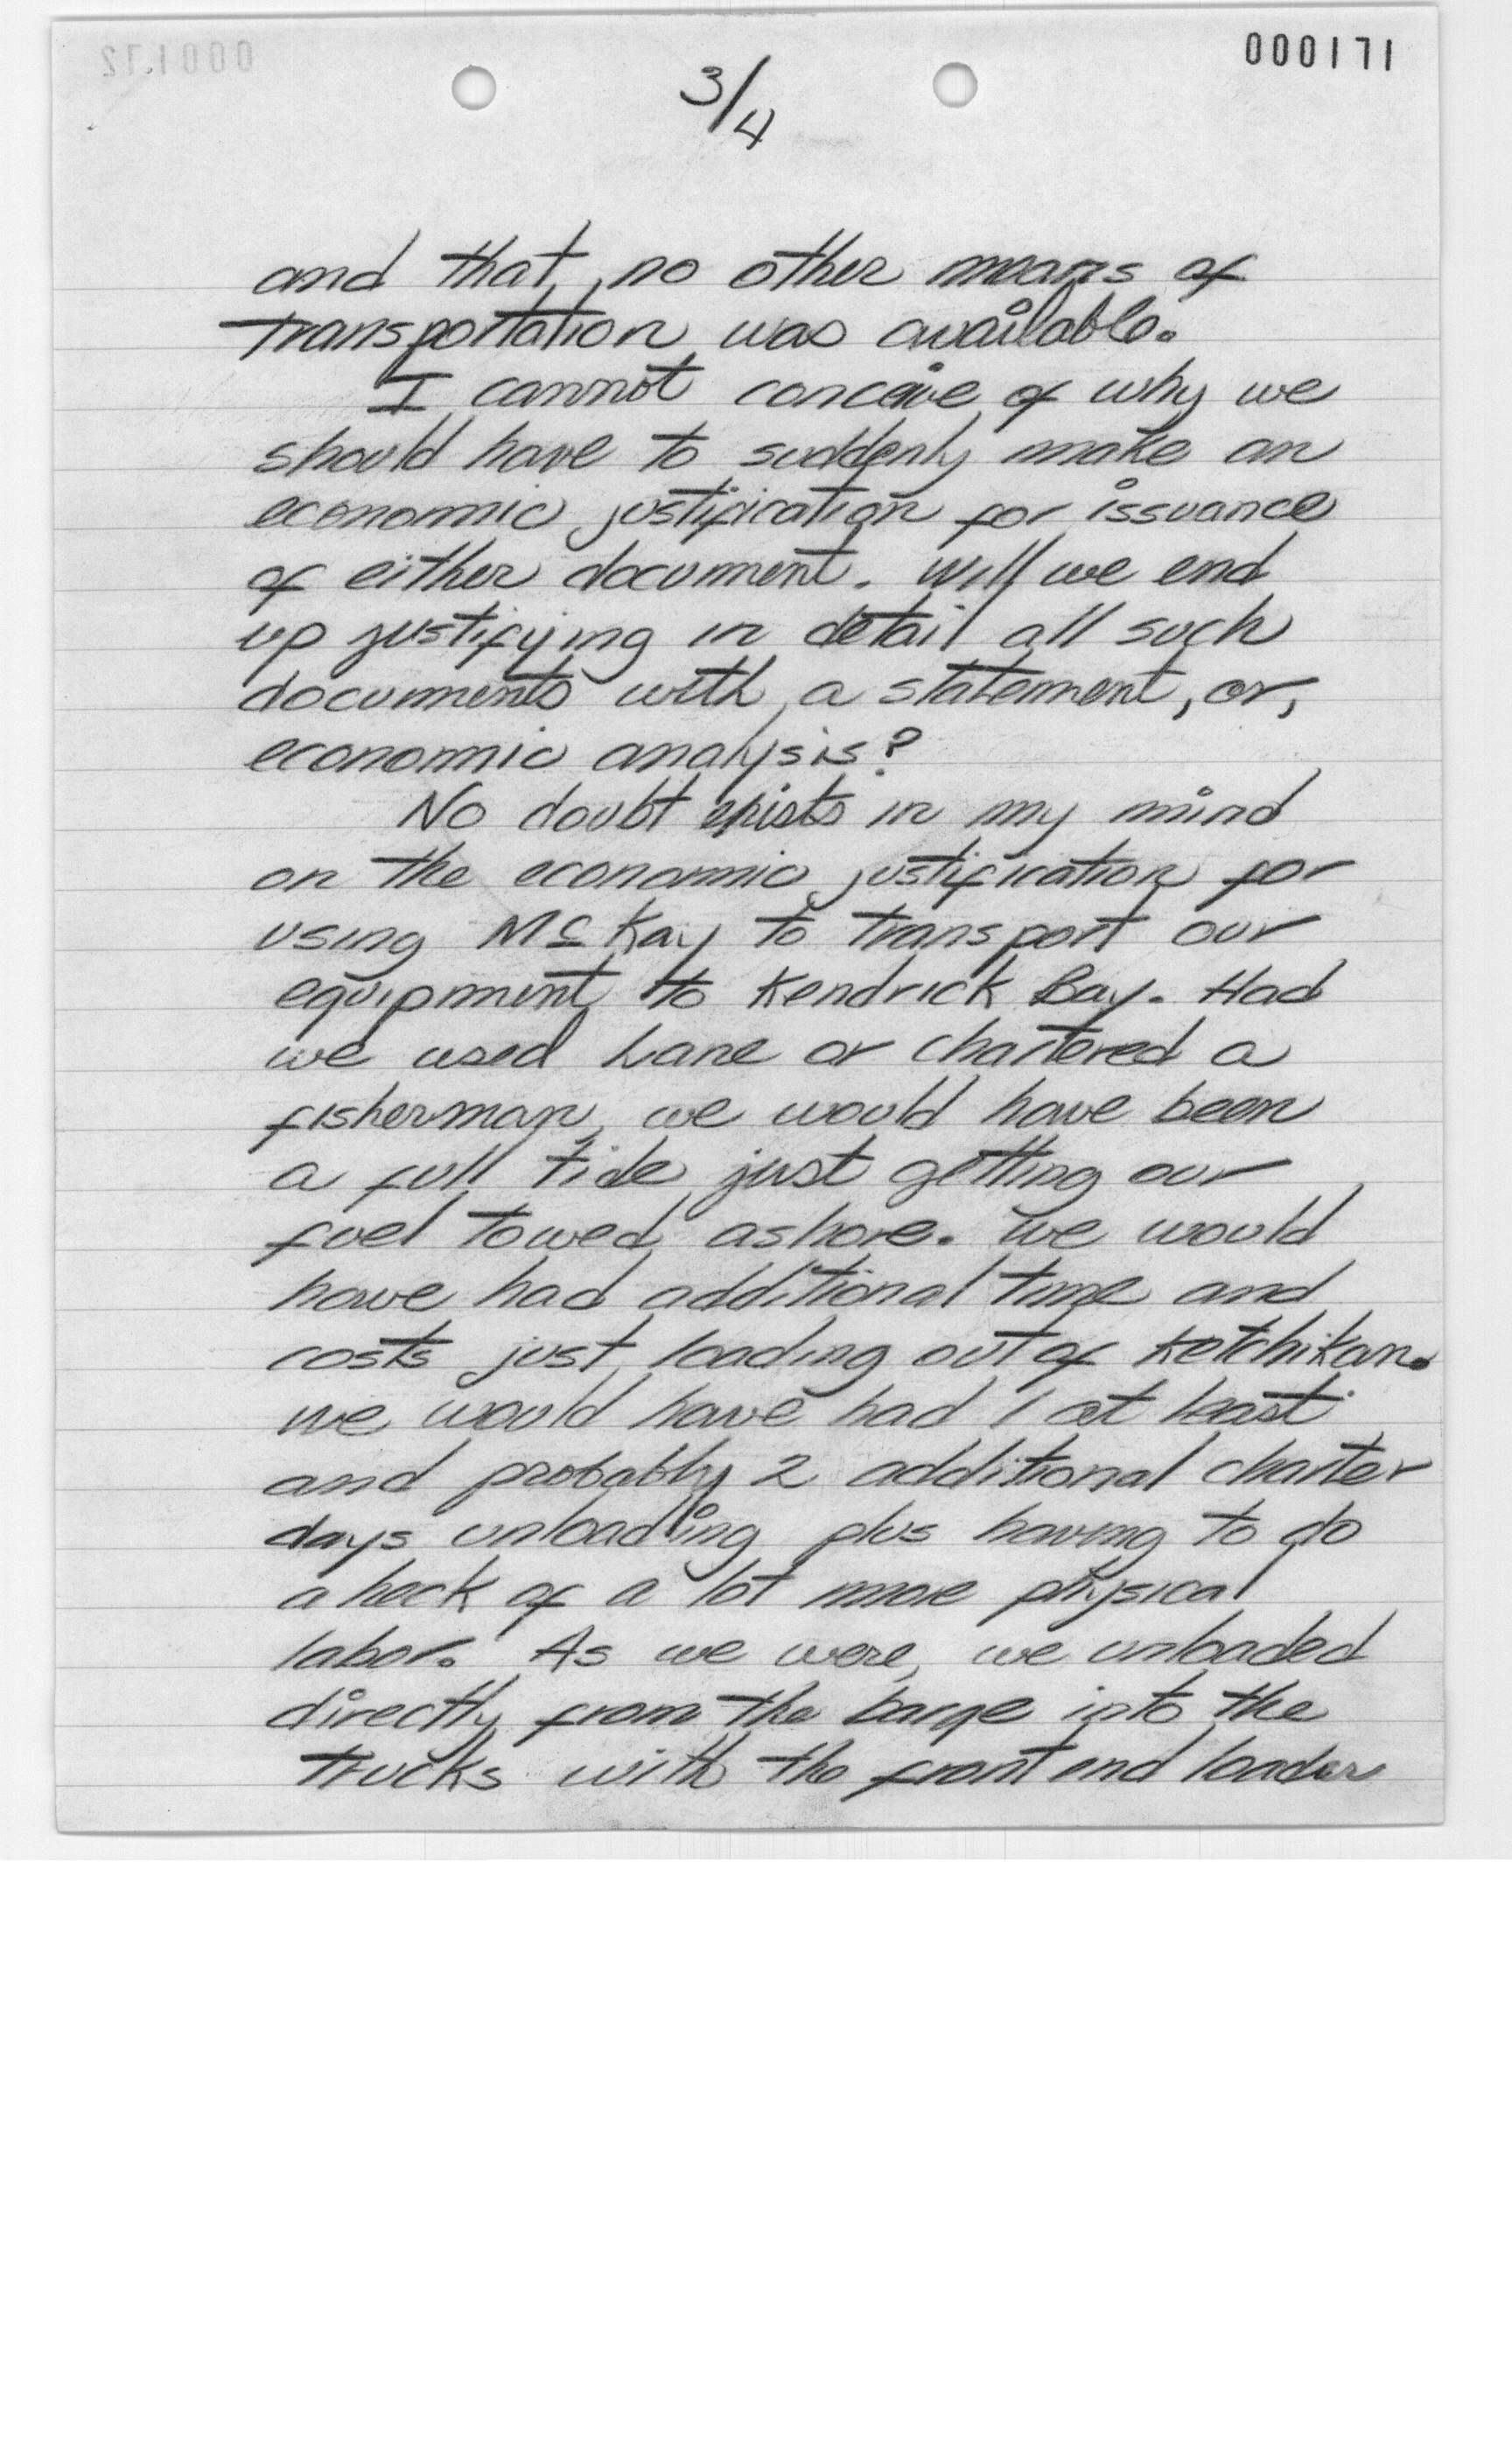 000171
3/4
and that, no other means of
transportation was available.
I cannot conceive of why we
should have to suddenly make an
economic justification for issuance
of either document. Will we end
up justifying in detail all such
documents with a statement, or,
economic analysis?
No doubt exists in my mind
on the economic justification for
using McKay to transport our
equipment to Kendrick Bay. Had
we used Lane or chartered a
fisherman, we would have been
a full tide just getting our
fuel towed ashore. We would
have had additional time and
costs just loading out of Ketchikan.
We would have had 1 at least
and probably 2 additional charter
days unloading plus having to do
a heck of a lot more physical
labor. As we were, we unloaded
directly from the barge into the
trucks with the front end loader